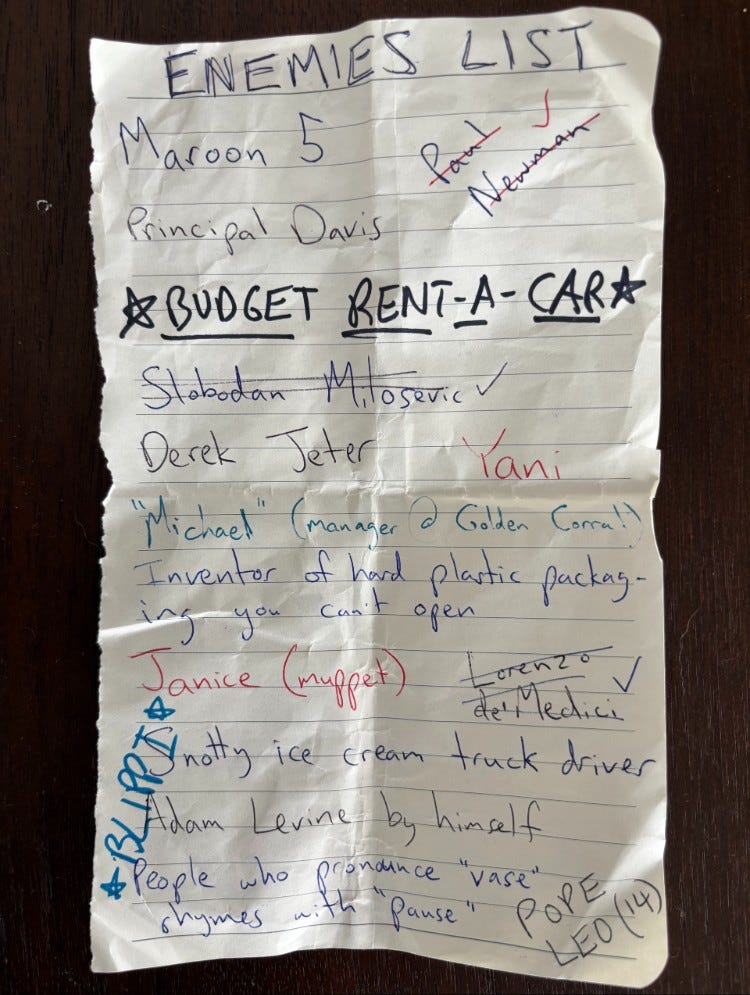 ENEMIES LIST
Maroon 5
Paul
Newman
Principal Davis
☆BUDGET RENT-A-CAR☆
Slobodan Milosevic ✓
Derek Jeter
Yani
"Michael" (manager @ Golden Corral)
Inventor of hard plastic packag-
ing you can't open
Janice (muppet)
Lorenzo
de' Medici ✓
☆BLIPPI☆
Snotty ice cream truck driver
Adam Levine by himself
People who pronounce "vase"
rhymes with "pause"
POPE
LEO (14)